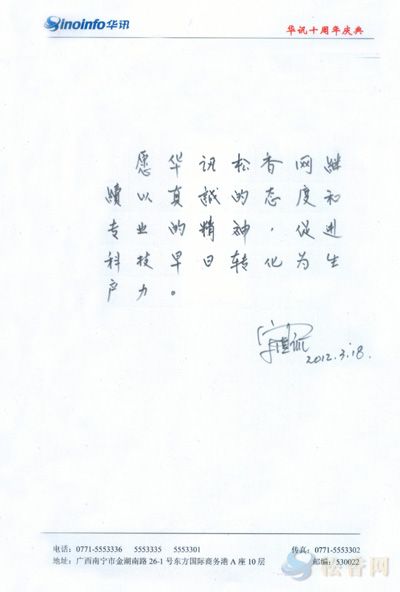 Sinoinfo华讯
华讯十周年庆典
愿华讯松香网继
续以真诚的态度和
专业的精神,促进
科技早日转化为生
产力。
2012.3.18.
电话:0771-5553336 5553335 5553301
传真:0771-5553302
地址:广西南宁市金湖南路 26-1 号东方国际商务港 A 座 10 层
邮编:530022
松香网